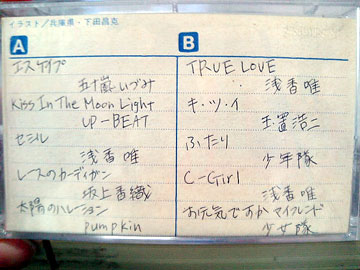 イラスト/兵庫県・下田昌克
A
エスケイプ
五十嵐いづみ
Kiss In The Moon Light
UP-BEAT
セシル
浅香唯
レースのカーディガン
坂上香織
太陽のハレーション
pumpkin
B
TRUE LOVE
浅香唯
キ・ツ・イ
玉置浩二
ふたり
少年隊
C-Girl
浅香唯
お元気ですかマイフレンド
少女隊